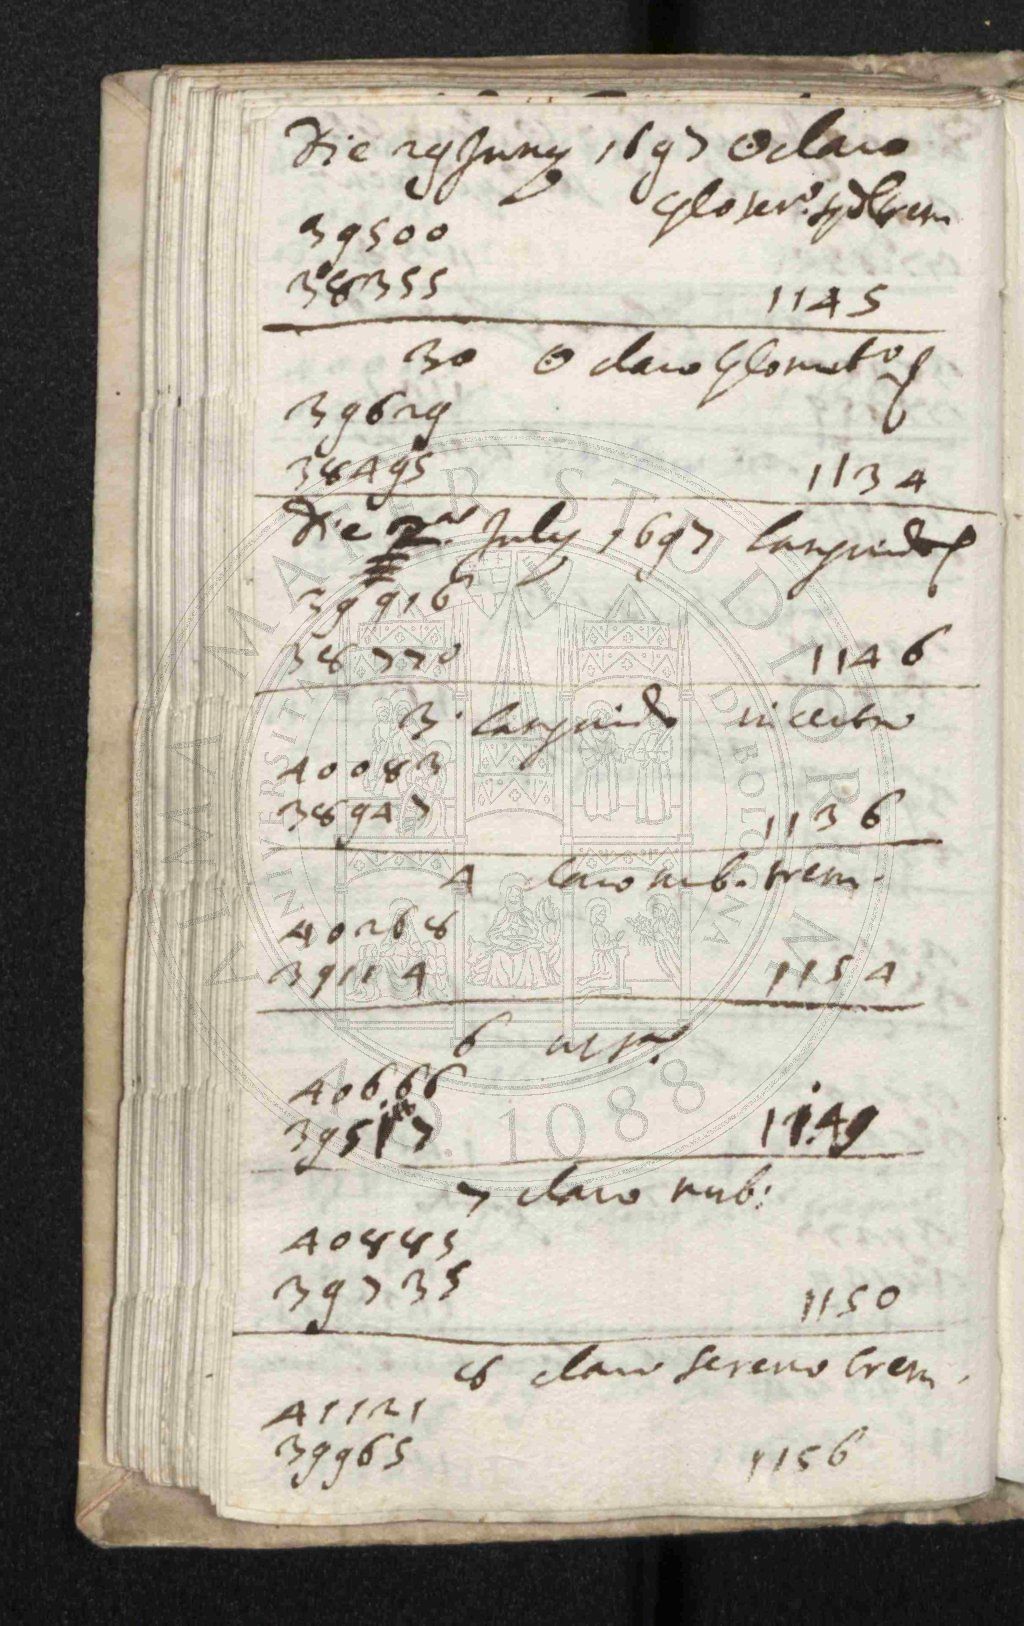 Die 29 Juny 1697 ☉ claro
39500
38355 1145
30 ☉ claro
39629
38495 1134
Die 2 July 1697 languido
39916
38770 1146
3. languido incerto
40083
38947 1136
4 claro nub. trem.
40268
39114 1154
6
40666
39517 1149
7 claro nub:
40885
39735 1150
8 claro sereno trem.
41121
39965 1156
ALMA MATER STUDIORUM
UNIVERSITAS BONONIENSIS
A.D. 1088